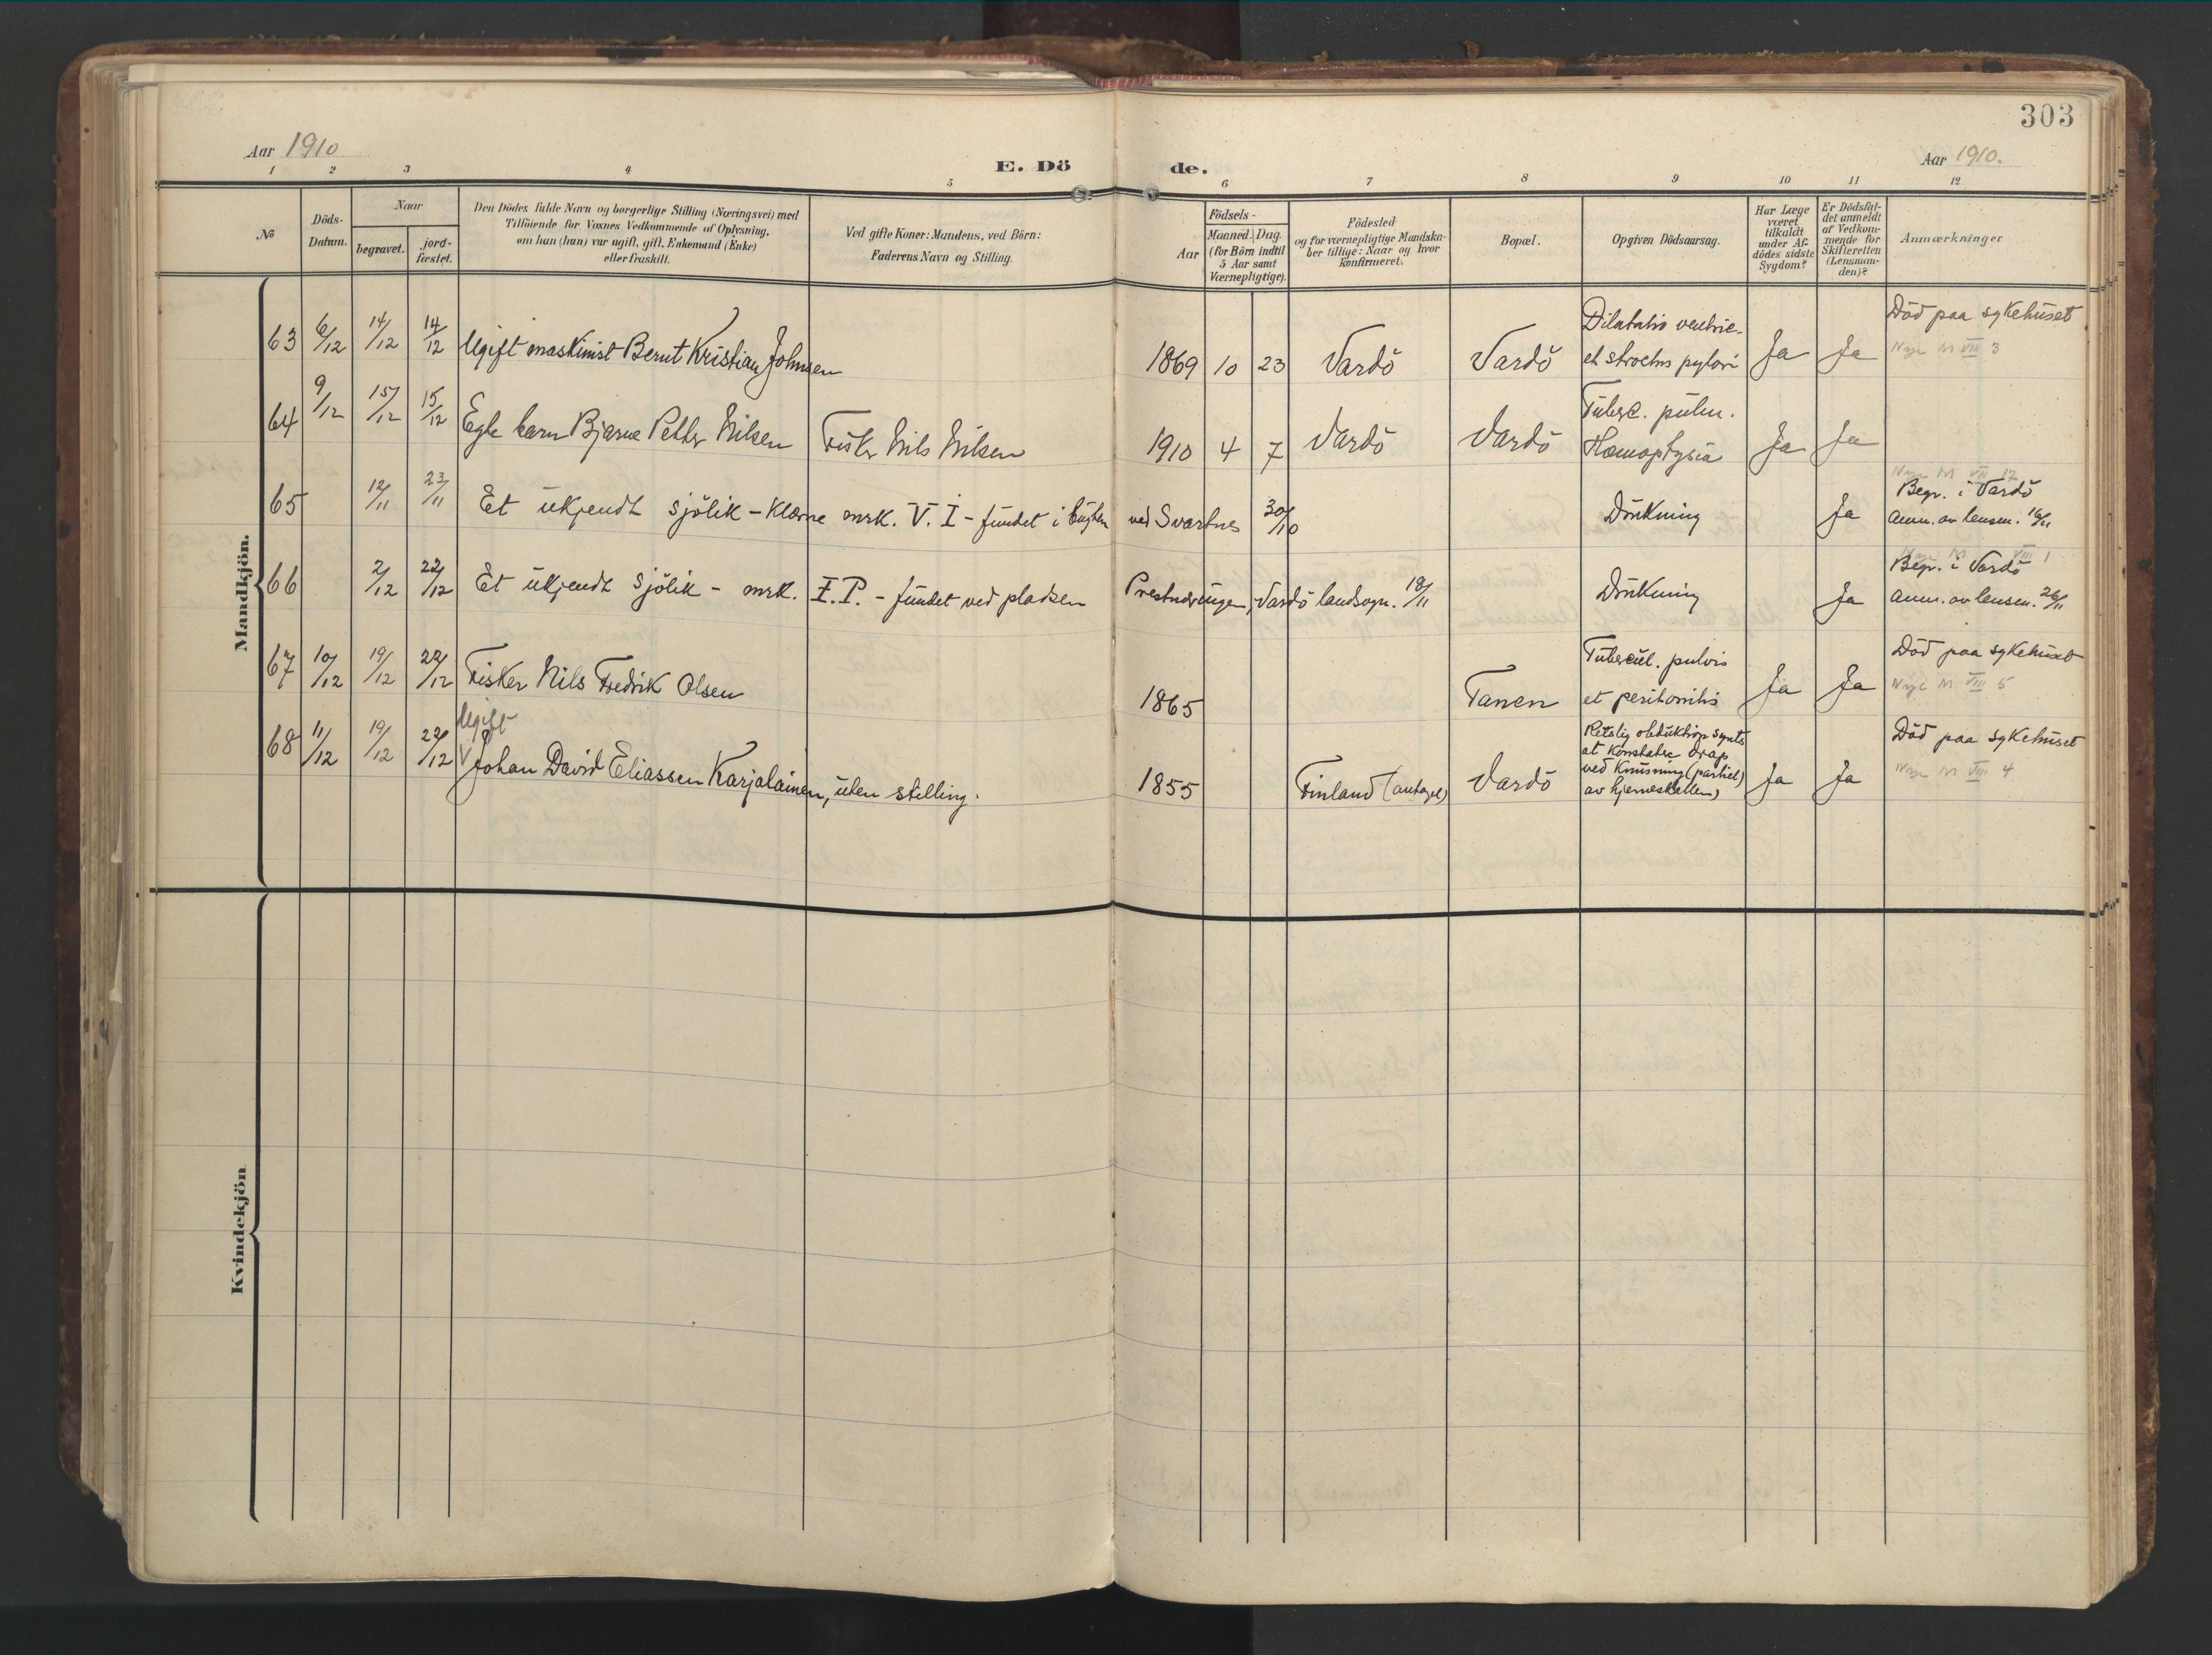 303
Aar 1910
E. Dö de.
Aar 1910.
1 2 3 4 5 6 7 8 9 10 11 12
№
Döds-
Datum.
Naar
begravet.
jord-
fæstet.
Den Dödes fulde Navn og borgerlige Stilling (Næringsvei) med
Tilföiende for Voxnes Vedkommende af Oplysning,
om han (hun) var ugift, gift, Enkemand (Enke)
eller fraskilt.
Ved gifte Koner: Mandens, ved Börn:
Faderens Navn og Stilling.
Födsels-
Aar
Maaned. Dag.
(for Börn indtil
5 Aar samt
Værnepligtige).
Födested
og for værnepligtige Mandska-
ber tillige: Naar og hvor
konfirmeret.
Bopæl.
Opgiven Dödsaarsag.
Har Læge
været
tilkaldt
under Af-
dödes sidste
Sygdom?
Er Dödsfal-
det anmeldt
af Vedkom-
mende for
Skifteretten
(Lensman-
den)?
Anmærkninger
Mandkjön.
63 6/12 14/12 14/12 Ugift maskinist Bernt Kristian Johnsen 1869 10 23 Vardö Vardö
Dilatatio ventric.
et pylori
Ja Ja
Död paa sykehuset
Nye M VIII 3
64 9/12 15/12 15/12 Egte barn Bjarne Petter Nilsen Fisk. Nils Nilsen 1910 4 7 Vardö Vardö
Tuberc. pulm.
Hæmoptysia
Ja Ja
65 12/11 23/11 Et ukjendt sjölik - Klærne mrk. V. I - fundet i bugten ved Svartnes 30/10 Drukning Ja
Nye M VII 12
Begr. i Vardö
anm. av lensm. 16/11
66 2/12 22/12 Et ukjendt sjölik - mrk. I. P. - fundet ved pladsen Prestnæringen, Vardö landsogn. 18/11 Drukning Ja
Nye M VIII 1
Begr. i Vardö
anm. av lensm. 26/11
67 10/12 19/12 22/12 Fisker Nils Fredrik Olsen 1865 Tanen
Tubercul. pulvis
et peritonitis
Ja Ja
Död paa sykehuset
Nye M VIII 5
68 11/12 19/12 22/12
Ugift
Johan David Eliassen Karjalainen, uten stilling. 1855 Finland (antagel.) Vardö
Retslig obduktion synts
at konstatere drap
ved knusning (partiel)
av hjerneskallen)
Ja Ja
Död paa sykehuset
Nye M VIII 4
Kvindekjön